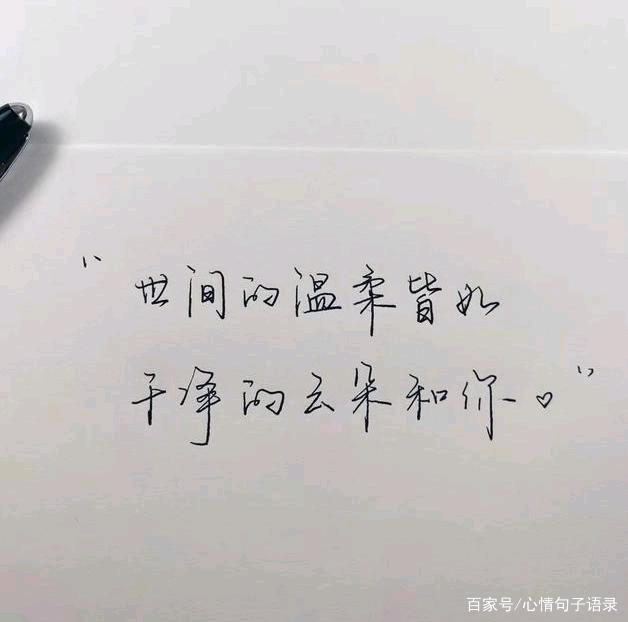 “世间的温柔皆如
干净的云朵和你♡”
百家号/心情句子语录